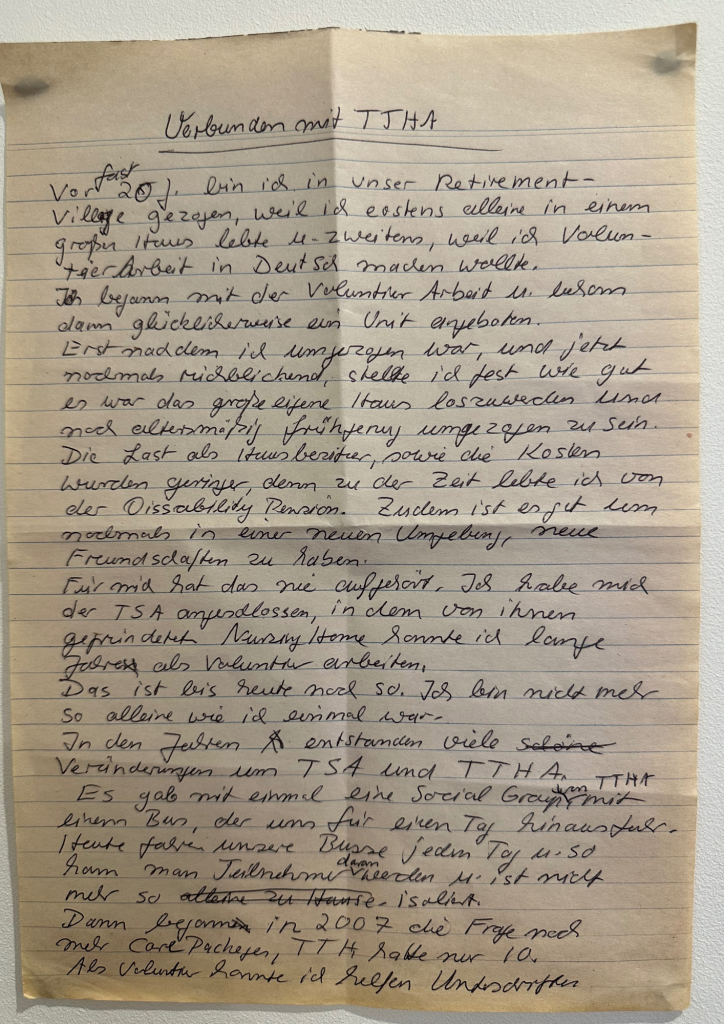 Verbunden mit TTHA
Vor fast 20 J. bin ich in unser Retirement-
Village gezogen, weil ich erstens alleine in einem
großen Haus lebte u. zweitens, weil ich Volun-
tier Arbeit in Deutsch machen wollte.
Ich begann mit der Voluntier Arbeit u. bekam
dann glücklicherweise ein Unit angeboten.
Erst nachdem ich umgezogen war, und jetzt
nochmals rückblickend, stelle ich fest wie gut
es war das große eigene Haus loszuwerden und
noch altersmäßig frühzeitig umgezogen zu sein.
Die Last als Hausbesitzer, sowie die Kosten
wurden geringer, denn zu der Zeit lebte ich von
der Dissability Pension. Zudem ist es gut um
nochmals in einer neuen Umgebung, neue
Freundschaften zu haben.
Für mich hat das nie aufgehört. Ich habe mich
der TSA angeschlossen, in dem von ihnen
gegründeten Nursing Home konnte ich lange
Jahre als Voluntier arbeiten.
Das ist bis heute noch so. Ich bin nicht mehr
so alleine wie ich einmal war.
In den Jahren entstanden viele schöne
Veränderungen um TSA und TTHA.
Es gab mit einmal eine Social Group von TTHA mit
einem Bus, der uns für einen Tag hinausfuhr.
Heute fahren unsere Busse jeden Tag u. so
kann man Teilnehmer daran werden u. ist nicht
mehr so alleine zu Hause. isoliert.
Dann begann in 2007 die Frage nach
mehr Care Packages, TTH hatte nur 10.
Als Voluntier konnte ich helfen Unterschriften